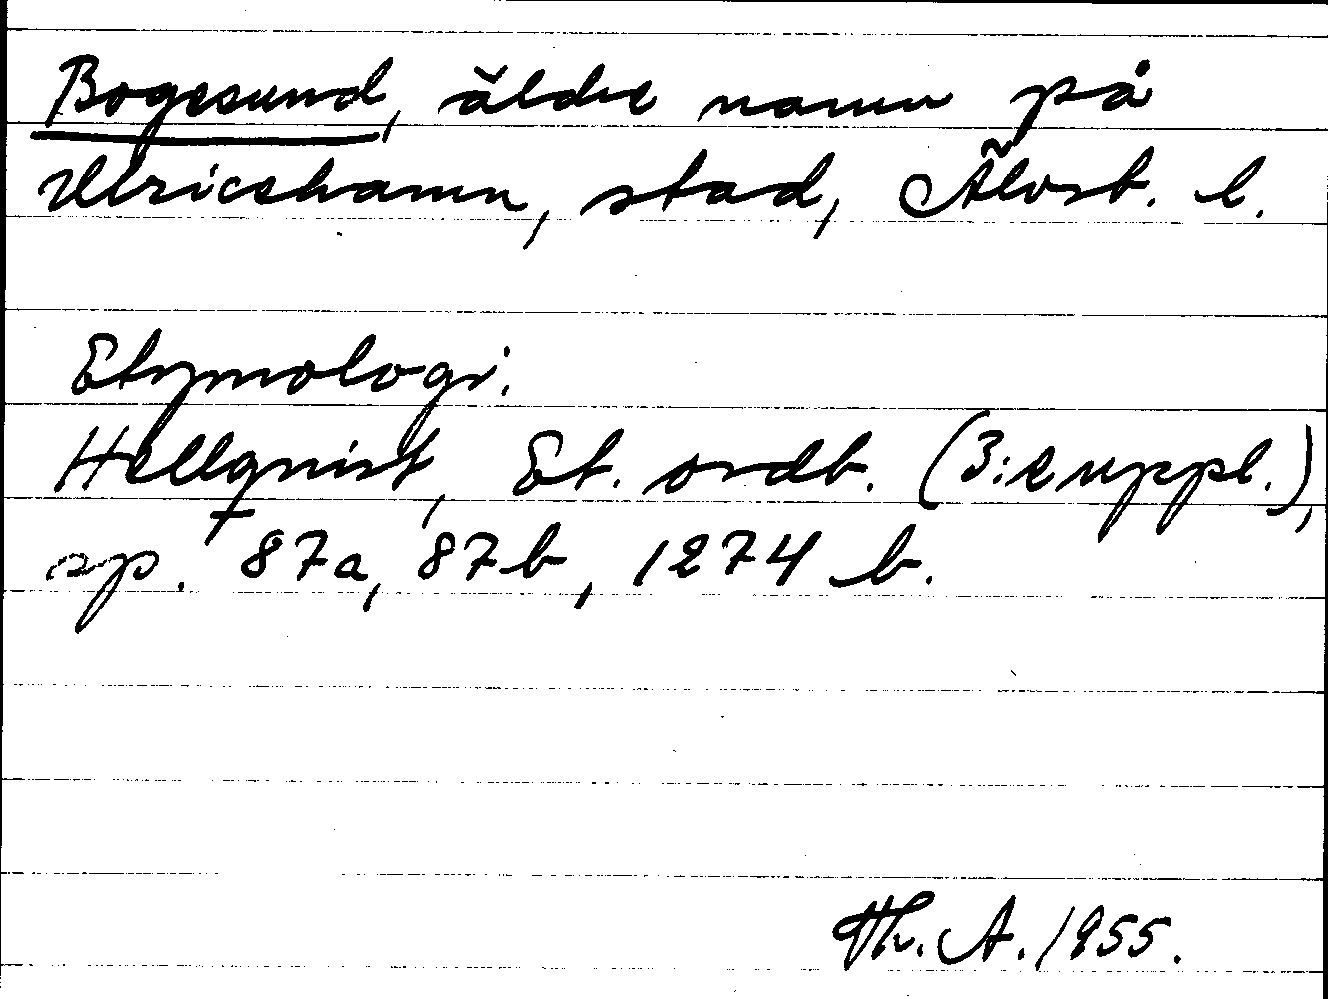 Bogesund, äldre namn på
Ulricehamn, stad, Älvsb. l.
Etymologi.
Hellquist, Et. ordb. (3:e uppl.),
sp. 87a, 87b, 1274 b.
Th. A. 1955.